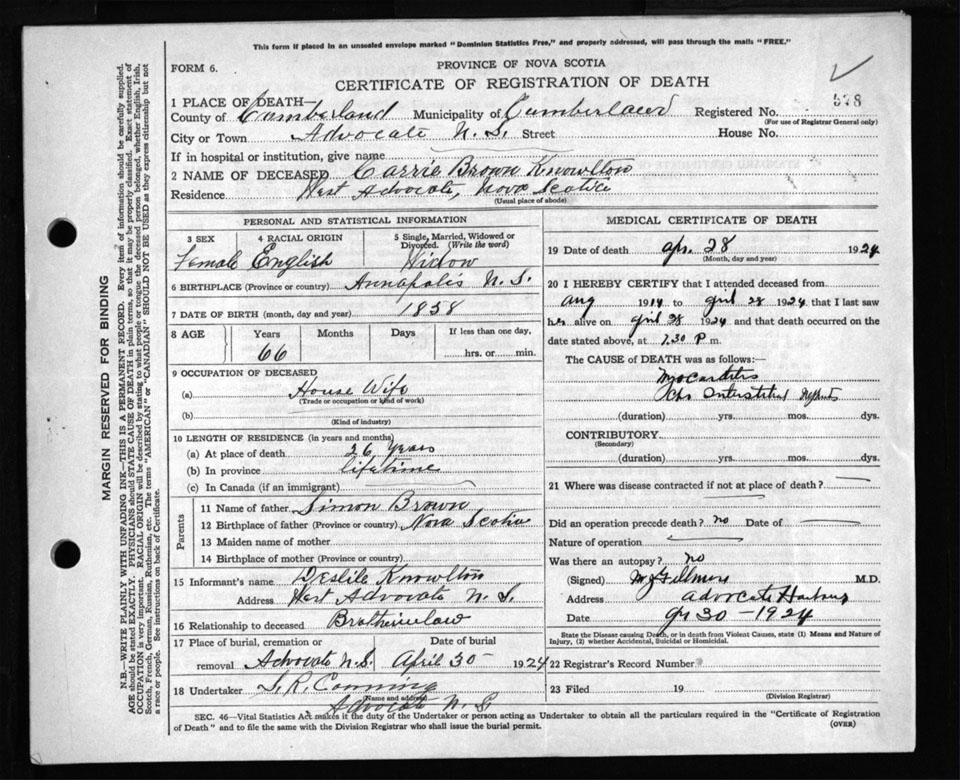 This form if placed in an unsealed envelope marked "Dominion Statistics Free," and properly addressed, will pass through the mails "FREE."
FORM 6.
PROVINCE OF NOVA SCOTIA
CERTIFICATE OF REGISTRATION OF DEATH
1 PLACE OF DEATH—
County of Cumberland Municipality of Cumberland Registered No. 578
(For use of Registrar General only)
City or Town Advocate N.S. Street House No.
If in hospital or institution, give name
2 NAME OF DECEASED Carrie Brown Knowlton
Residence West Advocate, Nova Scotia
(Usual place of abode)
PERSONAL AND STATISTICAL INFORMATION
3 SEX 4 RACIAL ORIGIN 5 Single, Married, Widowed or Divorced. (Write the word)
Female English Widow
6 BIRTHPLACE (Province or country) Annapolis N.S.
7 DATE OF BIRTH (month, day and year) 1858
8 AGE Years Months Days If less than one day,
66 hrs. or min.
9 OCCUPATION OF DECEASED
(a) House Wife
(Trade or occupation or kind of work)
(b)
(Kind of industry)
10 LENGTH OF RESIDENCE (in years and months)
(a) At place of death 26 years
(b) In province lifetime
(c) In Canada (if an immigrant)
Parents
11 Name of father Simon Brown
12 Birthplace of father (Province or country) Nova Scotia
13 Maiden name of mother
14 Birthplace of mother (Province or country)
15 Informant's name Deslile Knowlton
Address West Advocate N.S.
16 Relationship to deceased Brotherinlaw
17 Place of burial, cremation or removal Date of burial
Advocate N.S. April 30 1924
18 Undertaker S.R. Canning
(Name and address)
Advocate N.S
MEDICAL CERTIFICATE OF DEATH
19 Date of death Apr. 28 1924
(Month, day and year)
20 I HEREBY CERTIFY that I attended deceased from
Aug 1914 to April 28 1924 that I last saw
her alive on April 28 1924 and that death occurred on the
date stated above, at 7.30 P m.
The CAUSE of DEATH was as follows:
Myocarditis
Chr Interstitial
(duration) yrs. mos. dys.
CONTRIBUTORY
(Secondary)
(duration) yrs. mos. dys.
21 Where was disease contracted if not at place of death?
Did an operation precede death? no Date of
Nature of operation
Was there an autopsy? no
(Signed) M.D.
Address Advocate Harbour
Date Apr 30 - 1924
State the Disease causing Death, or in death from Violent Causes, state (1) Means and Nature of
Injury, (2) whether Accidental, Suicidal or Homicidal.
22 Registrar's Record Number
23 Filed 19
(Division Registrar)
SEC. 46—Vital Statistics Act makes it the duty of the Undertaker or person acting as Undertaker to obtain all the particulars required in the "Certificate of Registration
of Death" and to file the same with the Division Registrar who shall issue the burial permit. (OVER)
MARGIN RESERVED FOR BINDING
N.B.—WRITE PLAINLY WITH UNFADING INK—THIS IS A PERMANENT RECORD. Every item of information should be carefully supplied.
AGE should be stated EXACTLY. PHYSICIANS should STATE CAUSE OF DEATH in plain terms, so that it may be properly classified. Exact statement of
OCCUPATION is very important. RACIAL ORIGIN will be described by stating to what people or tongue the deceased person belonged, whether English, Irish,
Scotch, French, German, Russian, Ruthenian, etc. The terms "AMERICAN" or "CANADIAN" SHOULD NOT BE USED as they express citizenship but not
a race or people. See instructions on back of Certificate.